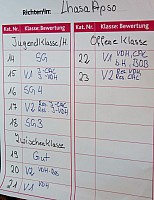 Richter/in: Lhasa Apso
Kat. Nr. Klasse: Bewertung
Jugendklasse/H.
14 SG
15 V1 J-CAC J-VDH
16 SG4
17 V2 Res. J-CAC Res. J-VDH
18 SG3
Zwischenklasse
19 Gut
20 V2 VDH-Res
21 V1 VDH
Kat. Nr. Klasse: Bewertung
Offene Klasse
22 V1 VDH, CAC b.H. BOB
23 V2 Res. CAC Res. VDH